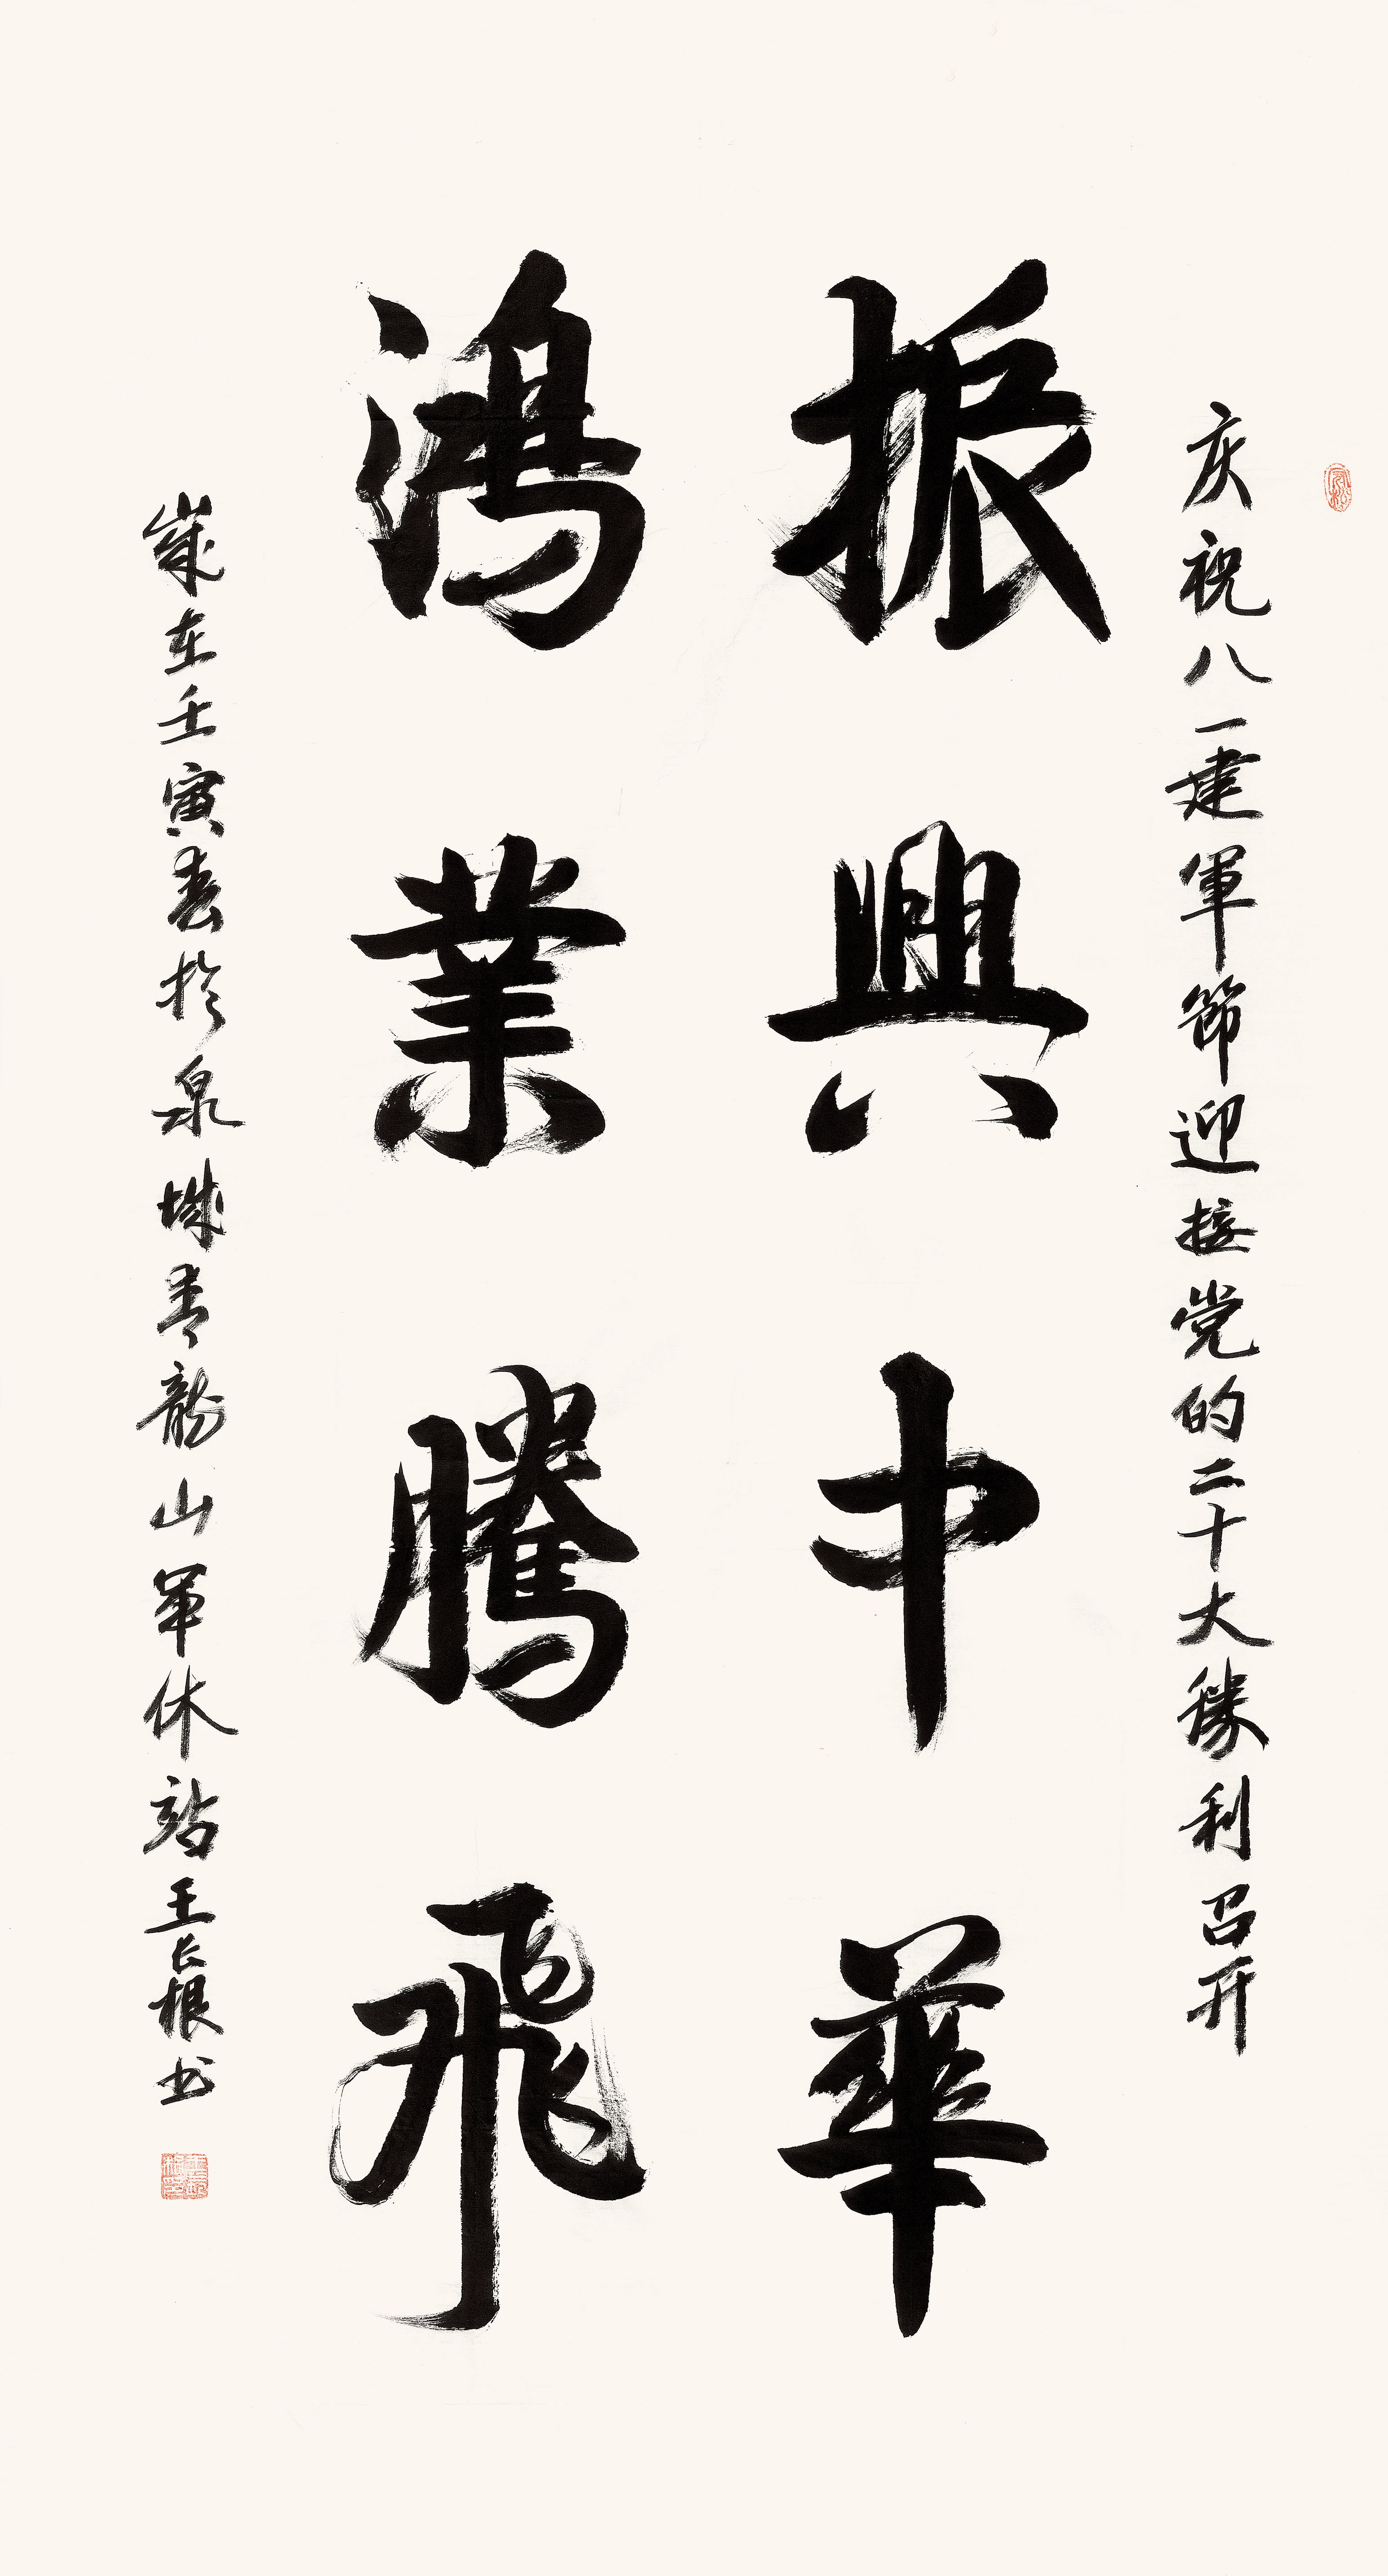 庆祝八一建軍節迎接党的二十大勝利召开
振興中華
鴻業騰飛
歲在壬寅春於泉城青龍山軍休站王长根书